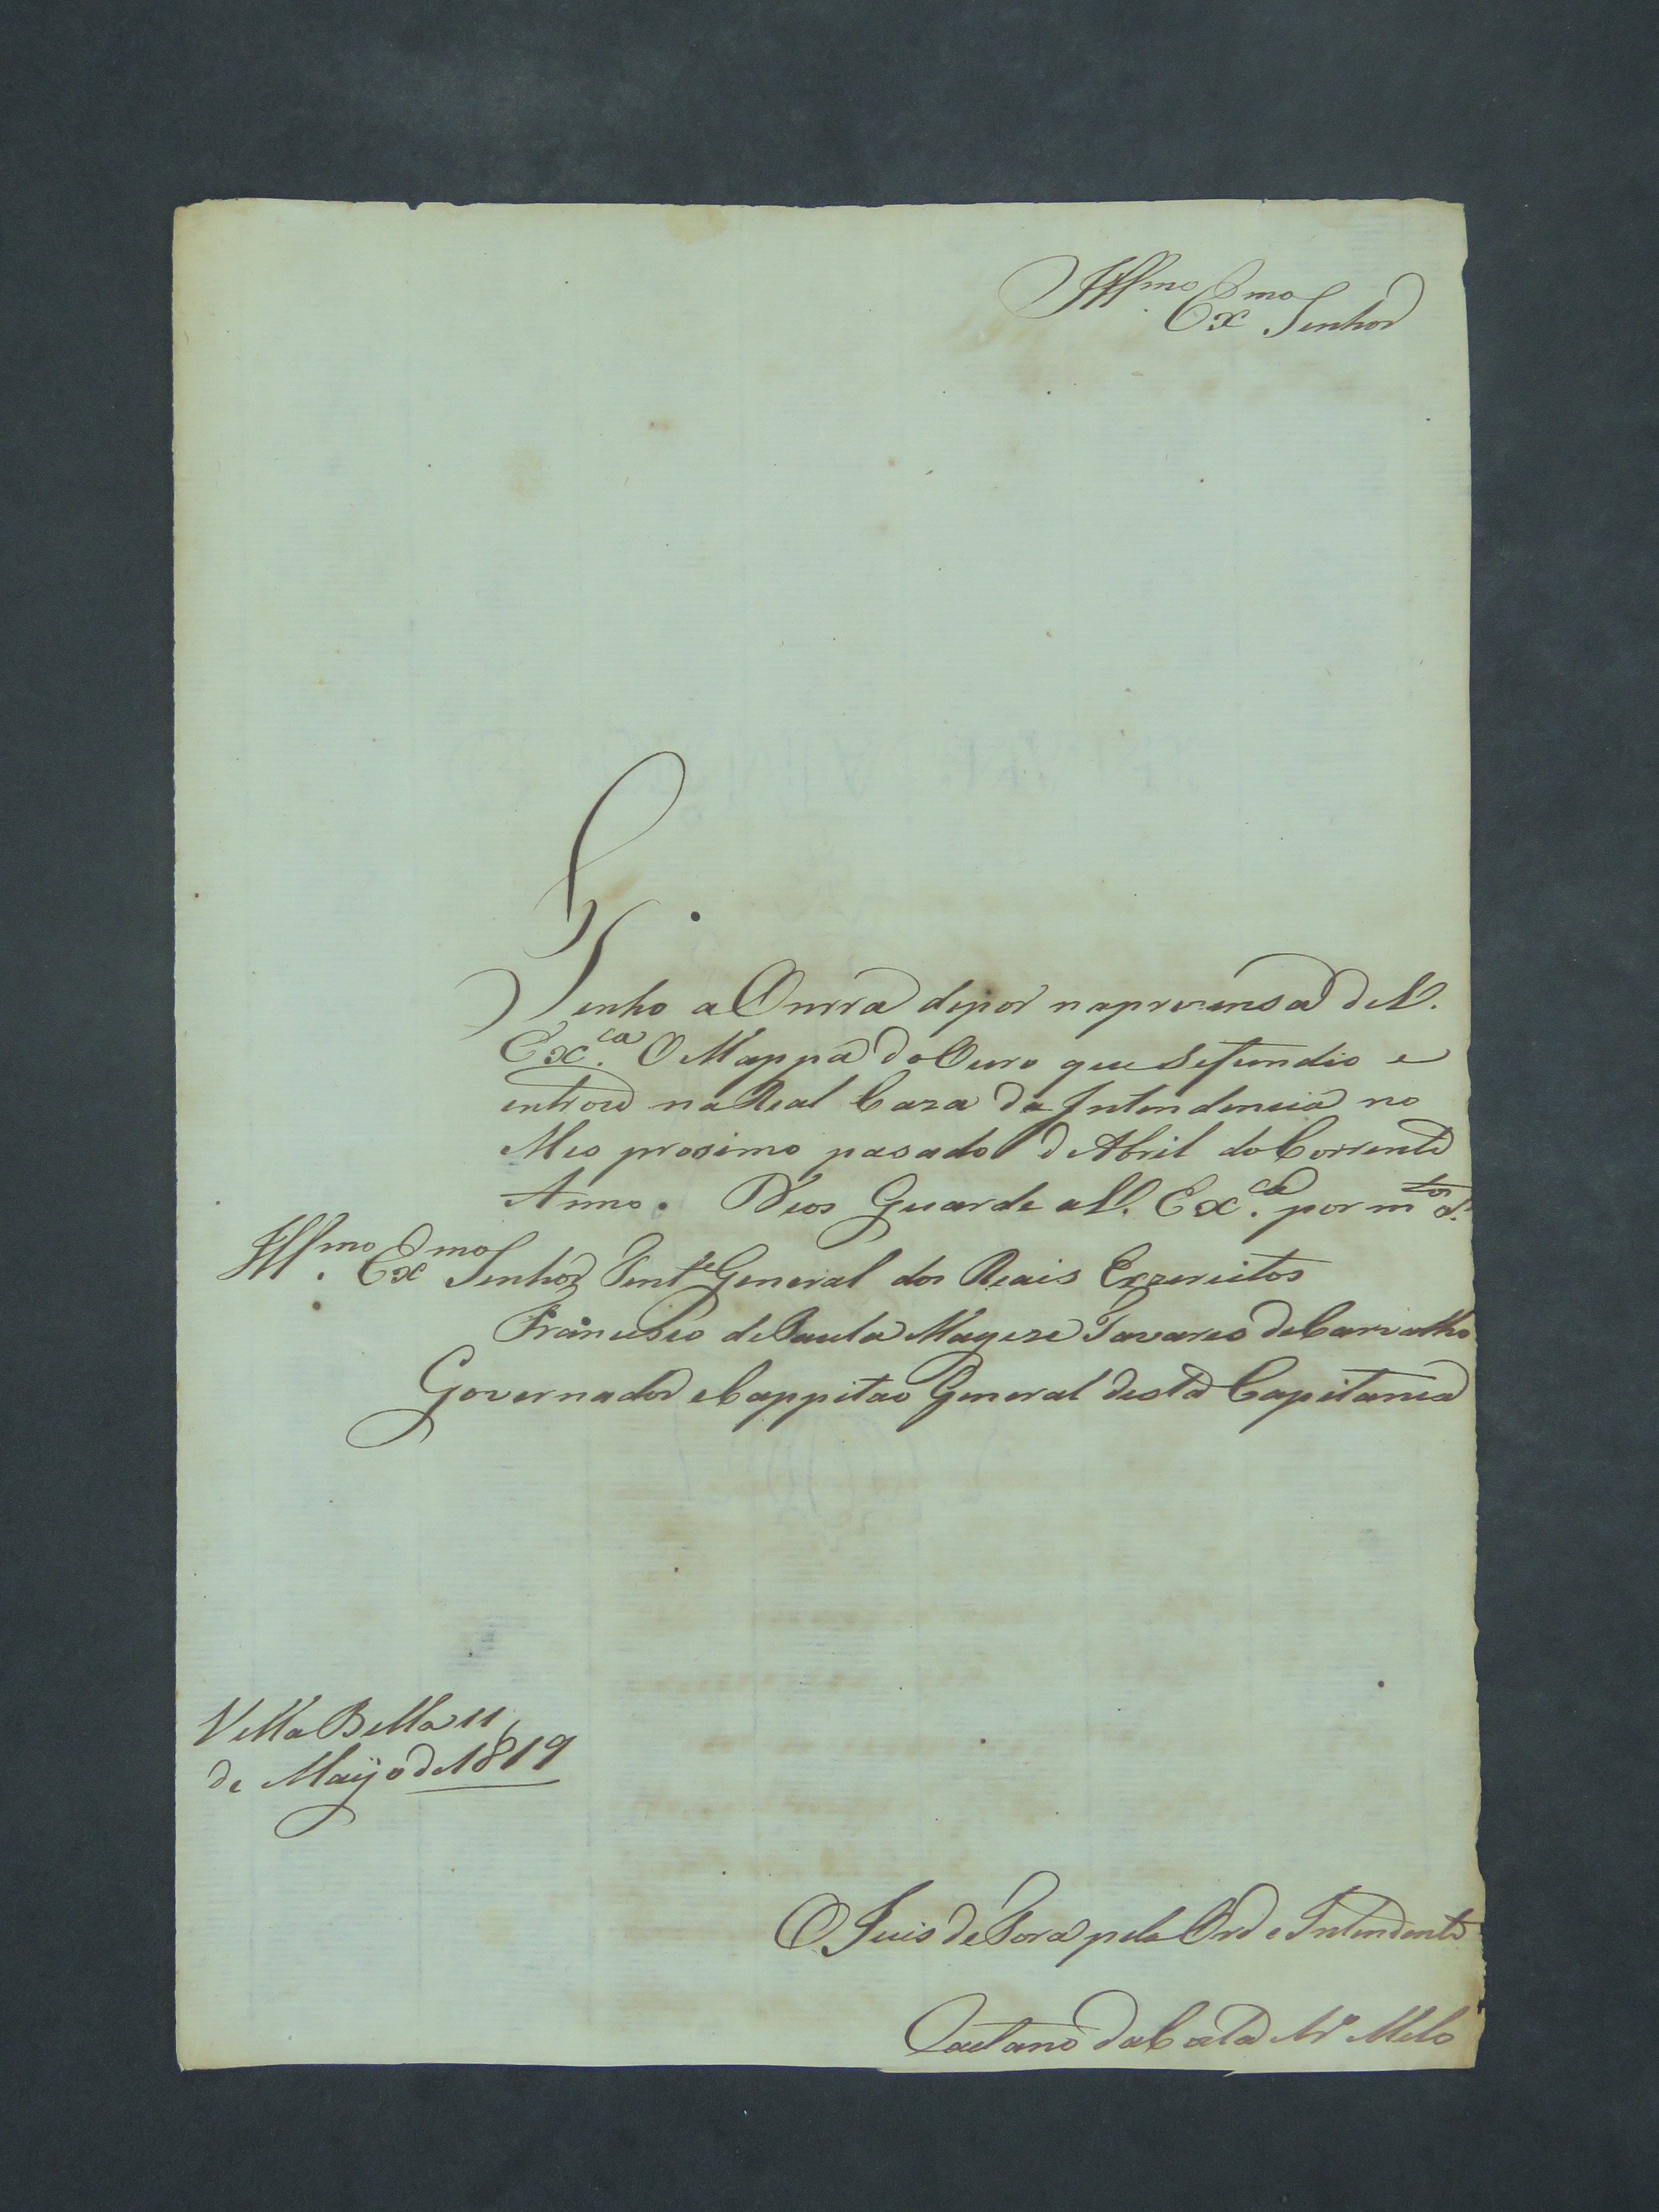 Illmo. Exmo Senhor
Tenho a Onrra depor naprezensa de V.
Exca. O Mappa do Ouro que Sefundio e
entrou na Real Caza da Intendencia no
Mes prosimo pasado de Abril do Corrente
Anno. Deos Guarde a V. Exca. por mtos as.
Illmo. Exmo Senhor Tente General dos Reais Exzercitos
Francisco de Paula Magece Tavares de Carvalho
Governador e Cappitao General desta Capitania
Villa Bella 11
de Mayo de 1819
O Juis de Fora pela Ord e Intendente
Caetano da Costa Melo